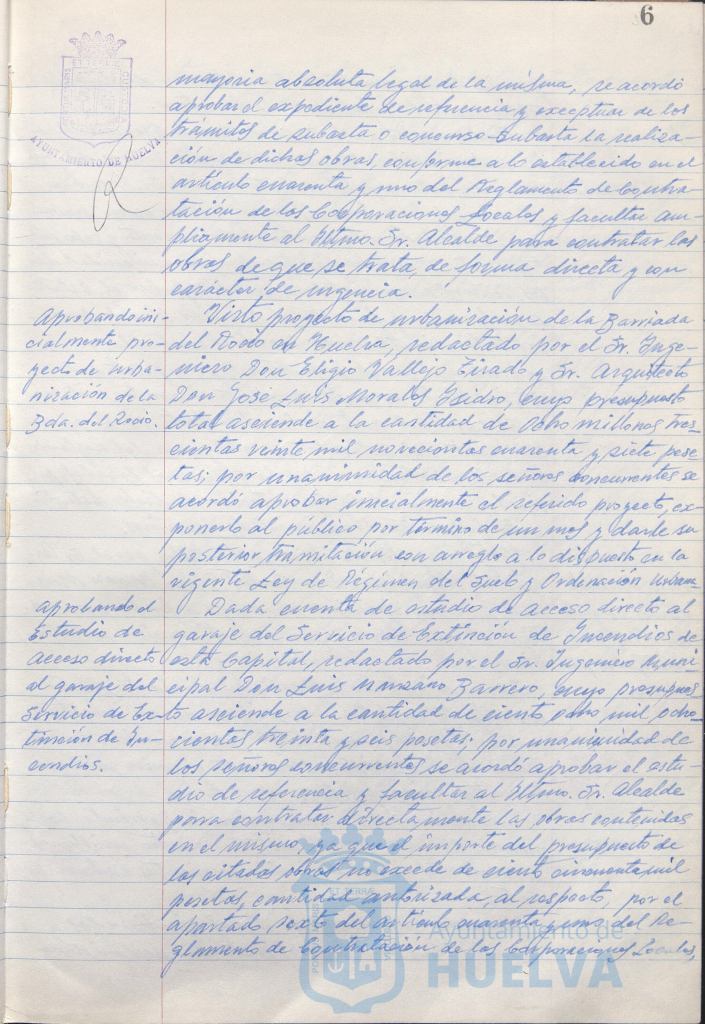 6
AYUNTAMIENTO DE HUELVA
mayoria absoluta legal de la misma, se acordó
aprobar el expediente de referencia y exceptuar de los
trámites de subasta o concurso-subasta la realiza-
ción de dichas obras, conforme a lo establecido en el
artículo cuarenta y uno del Reglamento de Contra-
tación de las Corporaciones Locales y facultar am-
pliamente al Iltmo. Sr. Alcalde para contratar las
obras de que se trata, de forma directa y con
carácter de urgencia.
Aprobando ini-
cialmente pro-
yecto de urba-
nización de la
Bda. del Rocio.
Visto proyecto de urbanización de la Barriada
del Rocio en Huelva, redactado por el Sr. Inge-
niero Don Eligio Vallejo Tirado y Sr. Arquitecto
Don José Luis Morales Isidro, cuyo presupuesto
total asciende a la cantidad de Ocho millones tres-
cientas veinte mil novecientas cuarenta y siete pese-
tas; por unanimidad de los señores concurrentes se
acordó aprobar inicialmente el referido proyecto, ex-
ponerlo al público por término de un mes y darle su
posterior tramitación con arreglo a lo dispuesto en la
vigente Ley de Régimen del Suelo y Ordenación Urbana-
aprobando el
Estudio de
acceso directo
al garaje del
Servicio de Ex-
tinción de In-
cendios.
Dada cuenta de estudio de acceso directo al
garaje del Servicio de Extinción de Incendios de
esta Capital, redactado por el Sr. Ingeniero Muni-
cipal Don Luis Manzano Barrero, cuyo presupues-
to asciende a la cantidad de ciento ocho mil ocho-
cientas treinta y seis pesetas; por unanimidad de
los señores concurrentes se acordó aprobar el estu-
dio de referencia y facultar al Iltmo. Sr. Alcalde
para contratar directamente las obras contenidas
en el mismo, ya que el importe del presupuesto de
las citadas obras no excede de ciento cincuenta mil
pesetas, cantidad autorizada, al respecto, por el
apartado sexto del artículo cuarenta y uno del Re-
glamento de Contratación de las Corporaciones Locales,
Ayuntamiento de
HUELVA